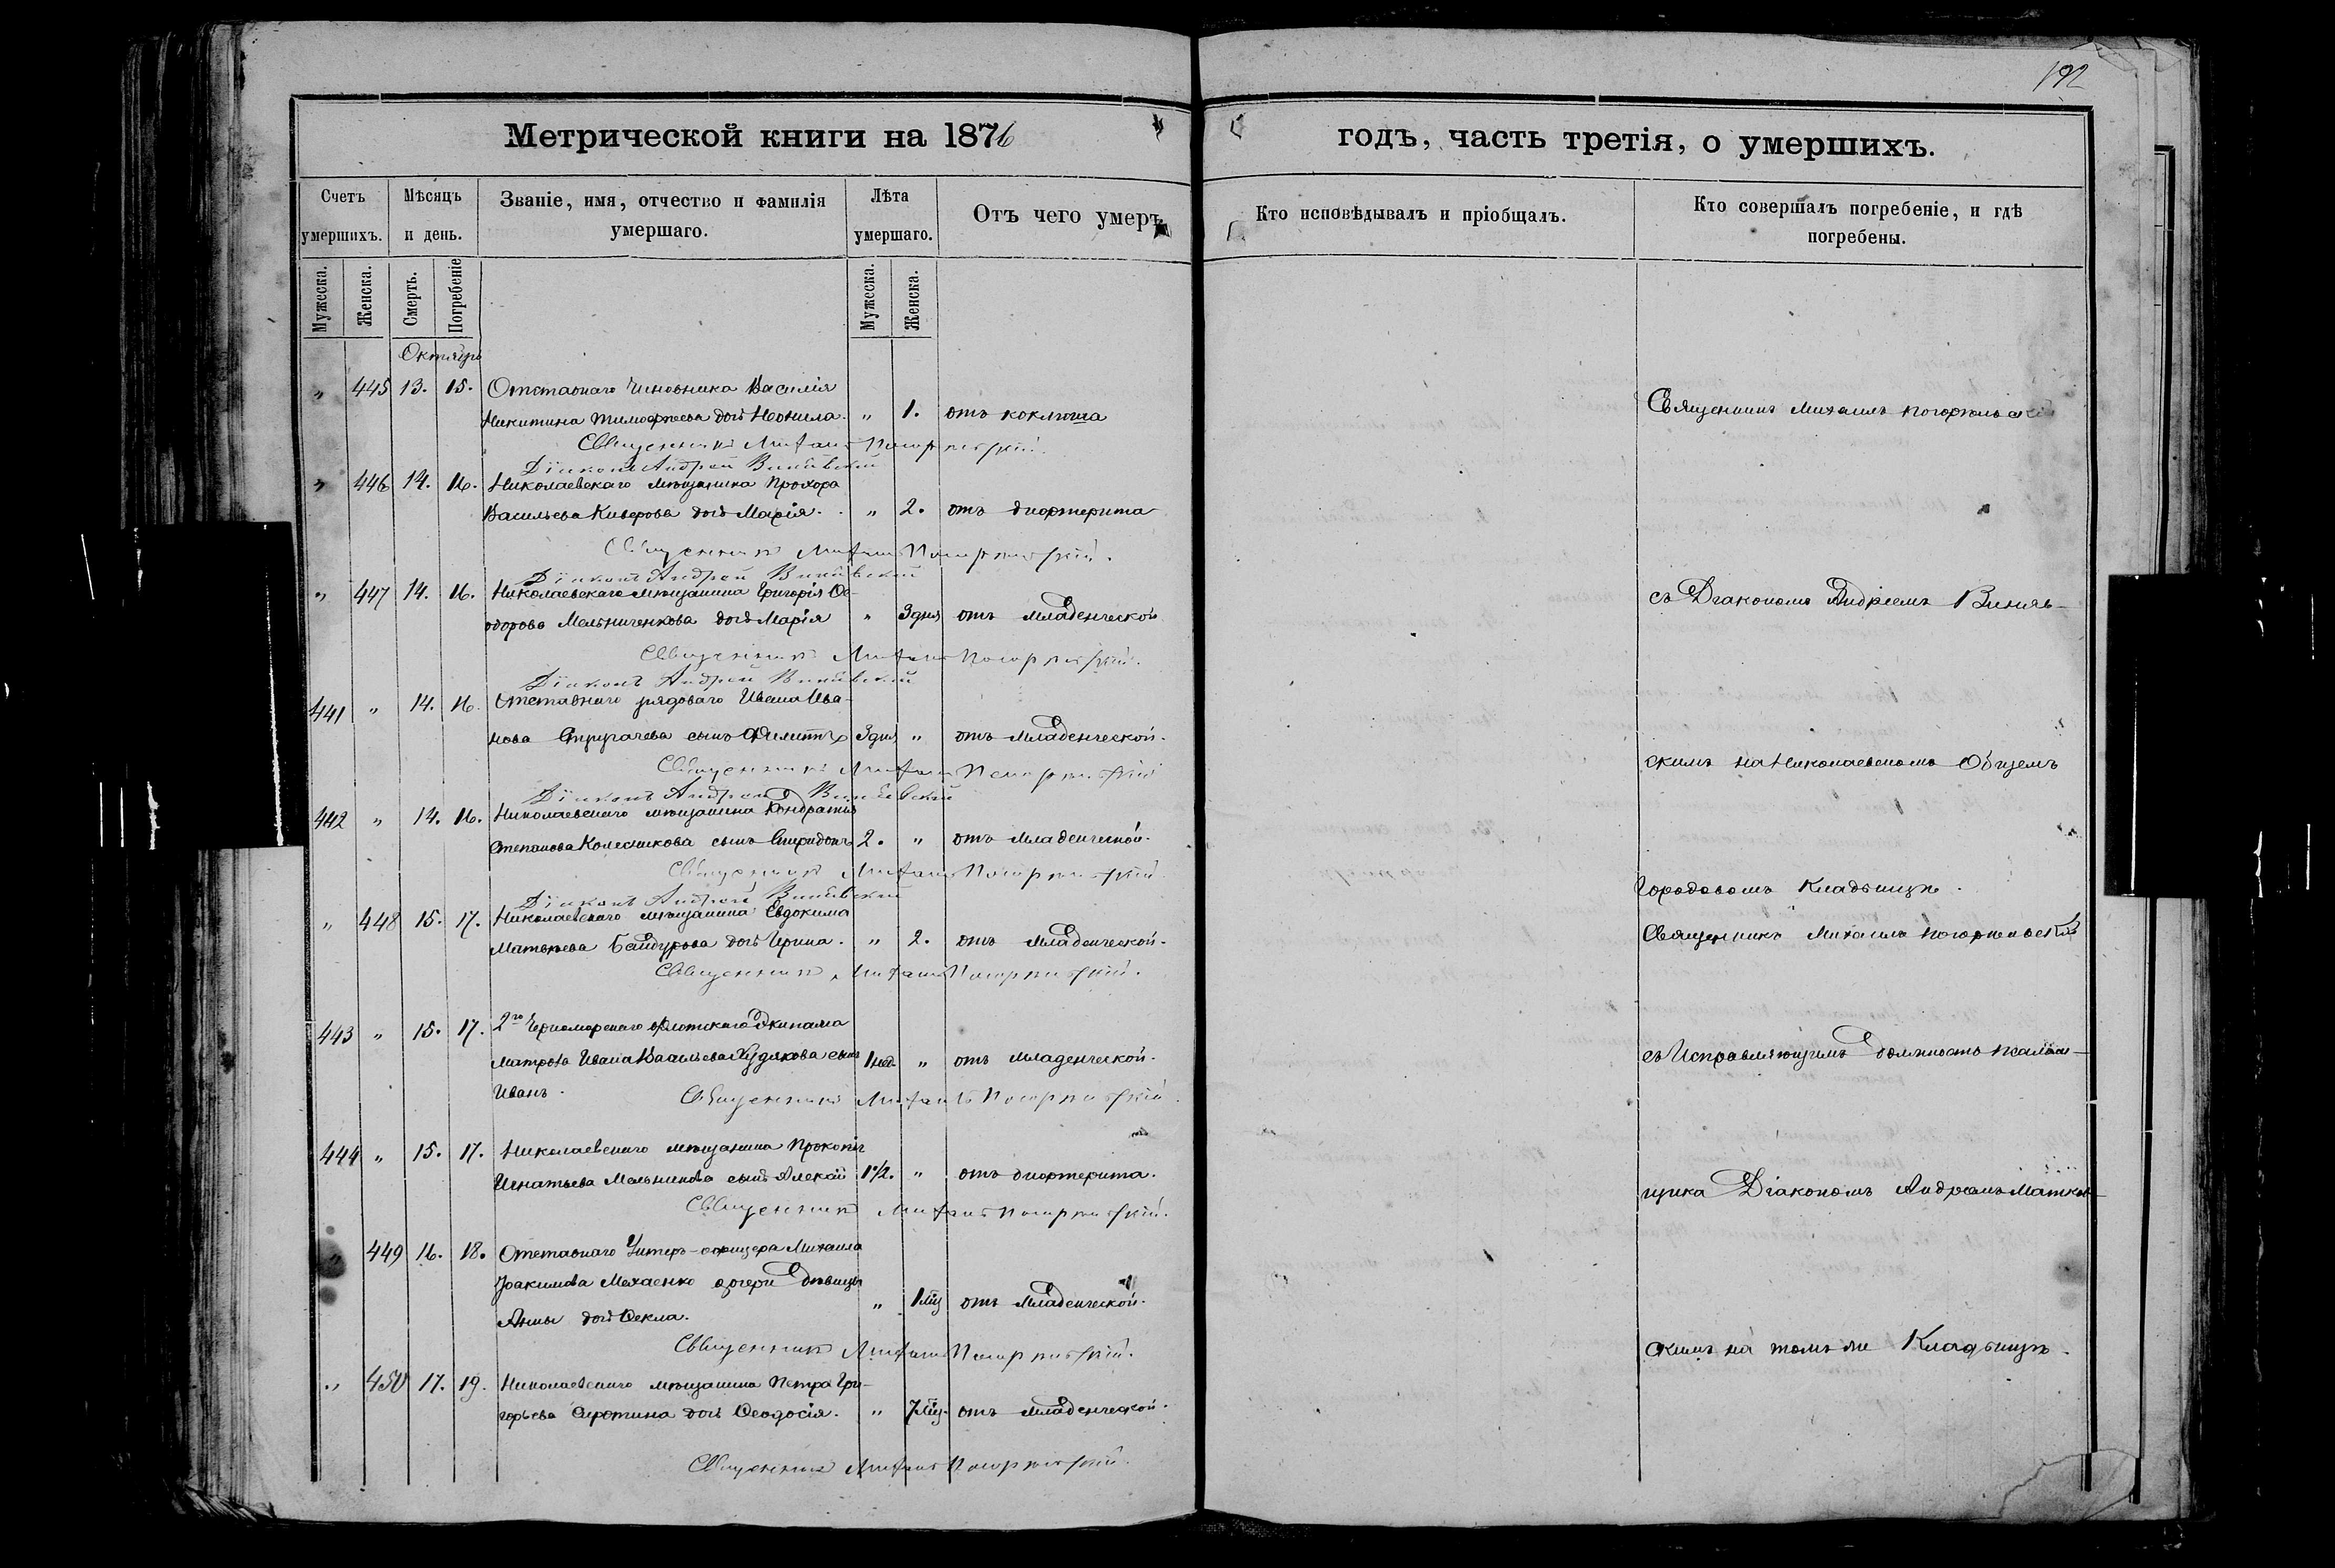 192
Метрической книги на 1876
годъ, часть третія, о умершихъ.
Счетъ умершихъ.
Мѣсяцъ и день.
Званіе, имя, отчество и фамилія умершаго.
Лѣта умершаго.
Отъ чего умеръ
Кто исповѣдывалъ и пріобщалъ.
Кто совершалъ погребеніе, и гдѣ погребены.
Мужеска.
Женска.
Смерть.
Погребеніе
Мужеска.
Женска.
Октябрь
" 445 13. 15. Отставнаго Чиновника Василія
Никитина Тимофеева дочь Неонила. " 1. отъ коклюша
Священникъ Михаилъ
Діаконъ Андрей
" 446 14. 16. Николаевскаго мѣщанина Прохора
Васильева Киверова дочь Марія. " 2. отъ дифтерита
Священникъ Михаилъ
Діаконъ Андрей
" 447 14. 16. Николаевскаго мѣщанина Григорія Ѳе-
одорова Мельниченкова дочь Марія " 3 дня отъ младенческой
Священникъ Михаилъ
Діаконъ Андрей
441 " 14. 16. Отставнаго рядоваго Ивана Ива-
нова сынъ 3 дня " отъ младенческой.
Священникъ Михаилъ
Діаконъ Андрей
442 " 14. 16. Николаевскаго мѣщанина Кондратія
Степанова Колесникова сынъ Спиридонъ 2. " отъ младенческой.
Священникъ Михаилъ
Діаконъ Андрей
" 448 15. 17. Николаевскаго мѣщанина Евдокима
Матвѣева Байдурова дочь Ирина. " 2. отъ младенческой.
Священникъ Михаилъ
443 " 15. 17. 2го Черноморскаго флотскаго Экипажа
матроса Ивана Васильева Худякова сынъ 1 нед. " отъ младенческой.
Иванъ.
Священникъ Михаилъ
444 " 15. 17. Николаевскаго мѣщанина Прокопія
Игнатьева Мельникова сынъ Алексій 1 1/2. " отъ дифтерита.
Священникъ Михаилъ
" 449 16. 18. Отставнаго Унтеръ-офицера Михаила
Іоакимова дочери дѣвицы
Анны дочь Ѳекла. " 1 мц отъ младенческой.
Священникъ Михаилъ
" 450 17. 19. Николаевскаго мѣщанина Петра Гри-
горьева Сиротина дочь Ѳеодосія. " 7 мц. отъ младенческой.
Священникъ Михаилъ
Священникъ Михаилъ
съ Діакономъ Андреемъ
скимъ на Николаевскомъ Общемъ
Городовомъ Кладбищѣ.
Священникъ Михаилъ
съ Исправляющимъ должность псалом-
щика Діакономъ Андреемъ
скимъ на томъ же Кладбищѣ.